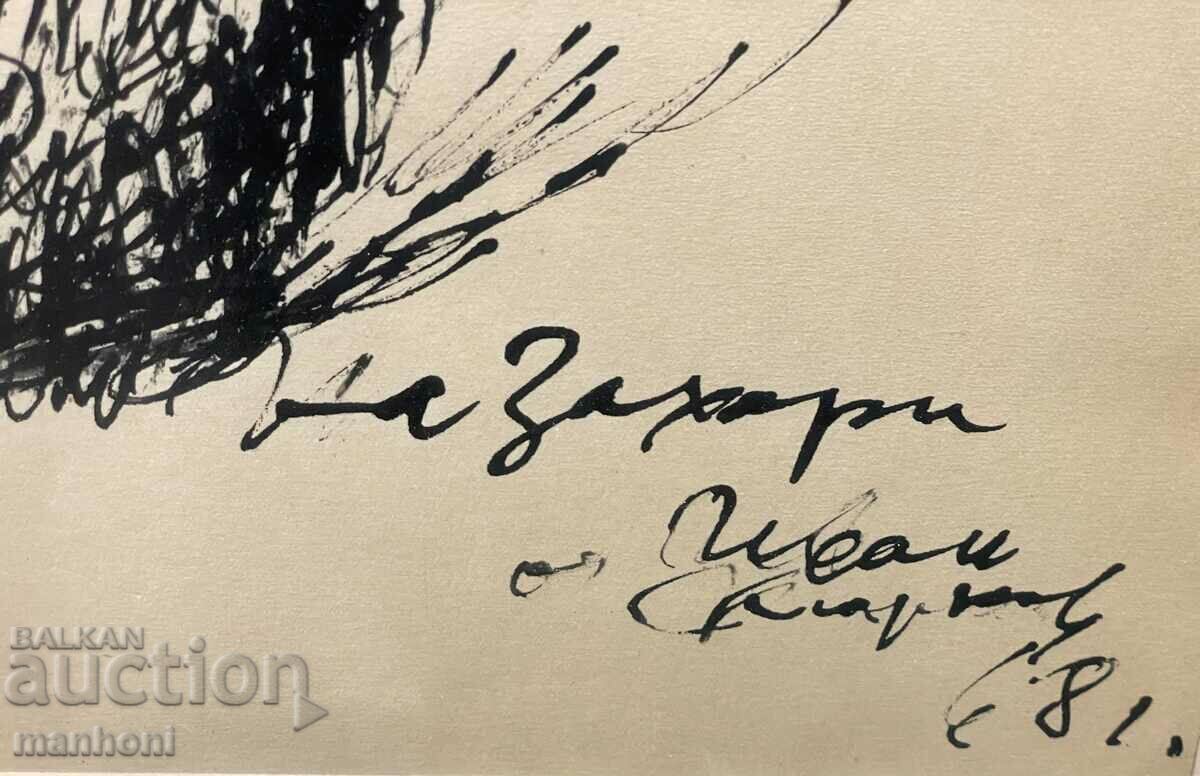 на Захари
от Иван
68 г.
BALKAN
auction
manhoni